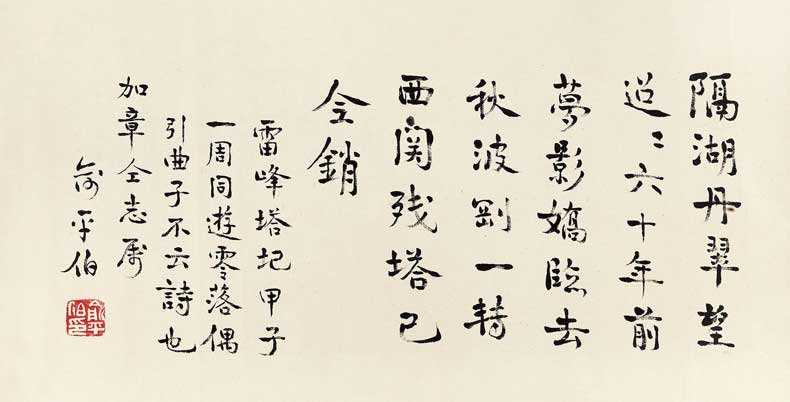 隔湖丹翠望
迢〻六十年前
夢影嬌臨去
秋波剛一轉
西関残塔已
全銷
雷峰塔圮甲子
一周同遊零落偶
引曲子不云詩也
加章仝志属
俞平伯
俞平伯印